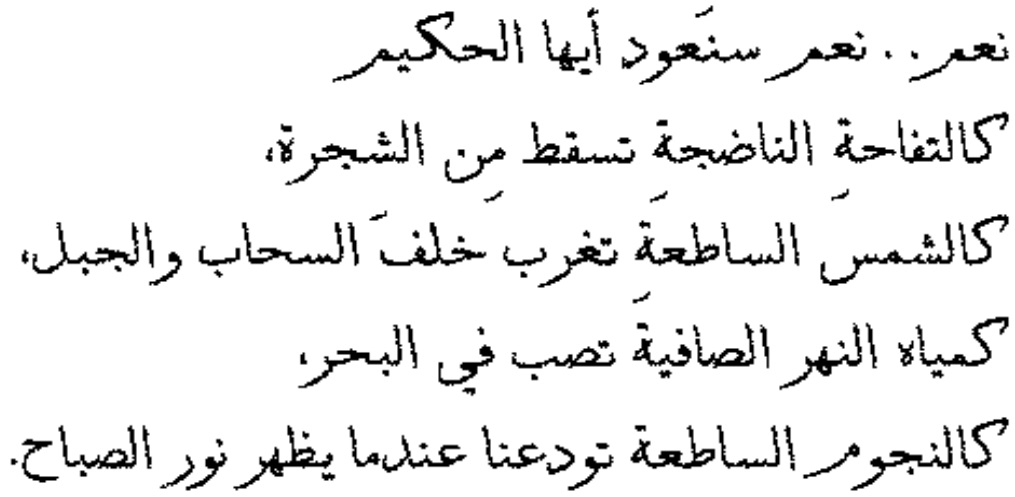 نعم.. نعم سنَعود أيها الحكيم
كالتفاحة الناضجة تسقط من الشجرة،
كالشمسَ الساطعةَ تغرب خَلفَ السحاب والجبل،
كمياه النهر الصافيةَ تصب في البحر،
كالنجوم الساطعة تودعنا عندما يظهر نور الصباح.